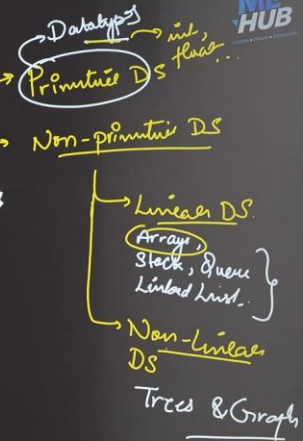 ML
HUB
Datatypes → int,
float...
→ Primitive DS
→ Non-primitive DS
→ Linear DS.
Arrays,
Stack, Queue
Linked List.
→ Non-Linear
DS
Trees & Graph